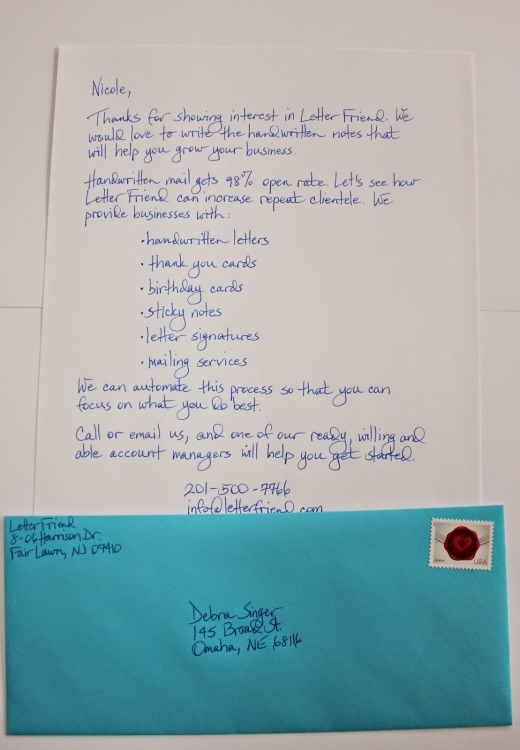 Nicole,
Thanks for showing interest in Letter Friend. We
would love to write the handwritten notes that
will help you grow your business.
Handwritten mail gets 98% open rate. Let's see how
Letter Friend can increase repeat clientele. We
provide businesses with:
• handwritten letters
• thank you cards
• birthday cards
• sticky notes
• letter signatures
• mailing services
We can automate this process so that you can
focus on what you do best.
Call or email us, and one of our ready, willing and
able account managers will help you get started.
201-500-7766
info@letterfriend.com
Letter Friend
8-06 Harrison Dr.
Fair Lawn, NJ 07410
USA
Debra Singer
145 Broad St.
Omaha, NE 68116